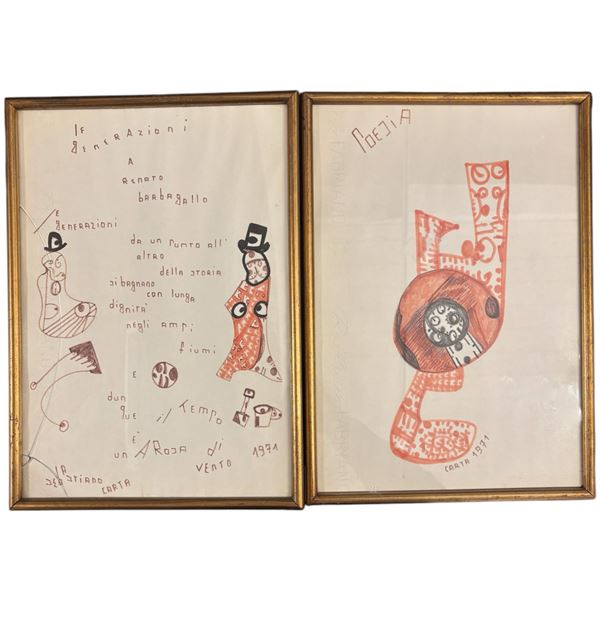 le
generazioni
A
Renato
barbagallo
le
generazioni
da un punto all'
altro
della storia
si bagnano
con lunga
dignità
negli ampi
fiumi
e
dun
que il Tempo
è
un A Rosa di
vento 1971
Sebastiano
Carta
Poesia
Carta 1971